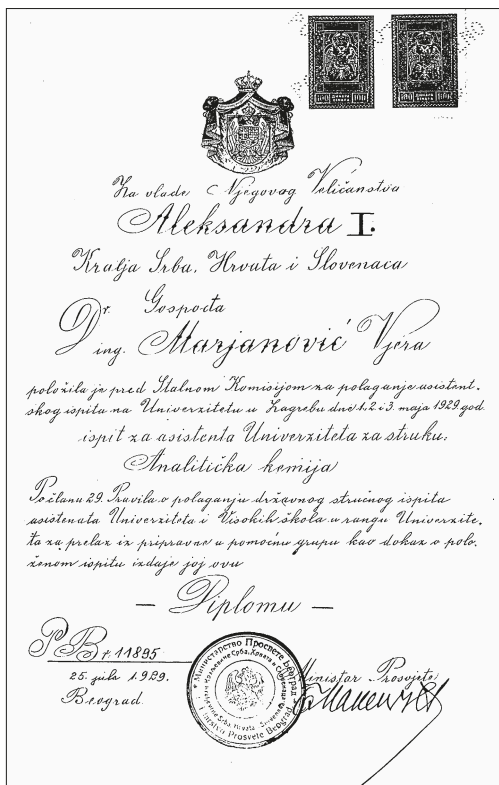 Za vlade Njegovog Veličanstva
Aleksandra I.
Kralja Srba, Hrvata i Slovenaca
Gospođa
Dr. ing. Marjanović Vjera
položila je pred Stalnom Komisijom za polaganje asistent-
skog ispita na Univerzitetu u Zagrebu dne 1. 2 i 3. maja 1929. god.
ispit za asistenta Univerziteta za struku:
Analitička kemija
Po članu 29. Pravila o polaganju državnog stručnog ispita
asistenata Univerziteta i Visokih škola u rangu Univerzite-
ta za prelaz iz pripravne u pomoćnu grupu kao dokaz o polo-
ženom ispitu izdaje joj ovu
— Diplomu —
P Br 11895
25. jula 1929.
Beograd.
Министарство Просвете Београд
Ministar Prosvjete